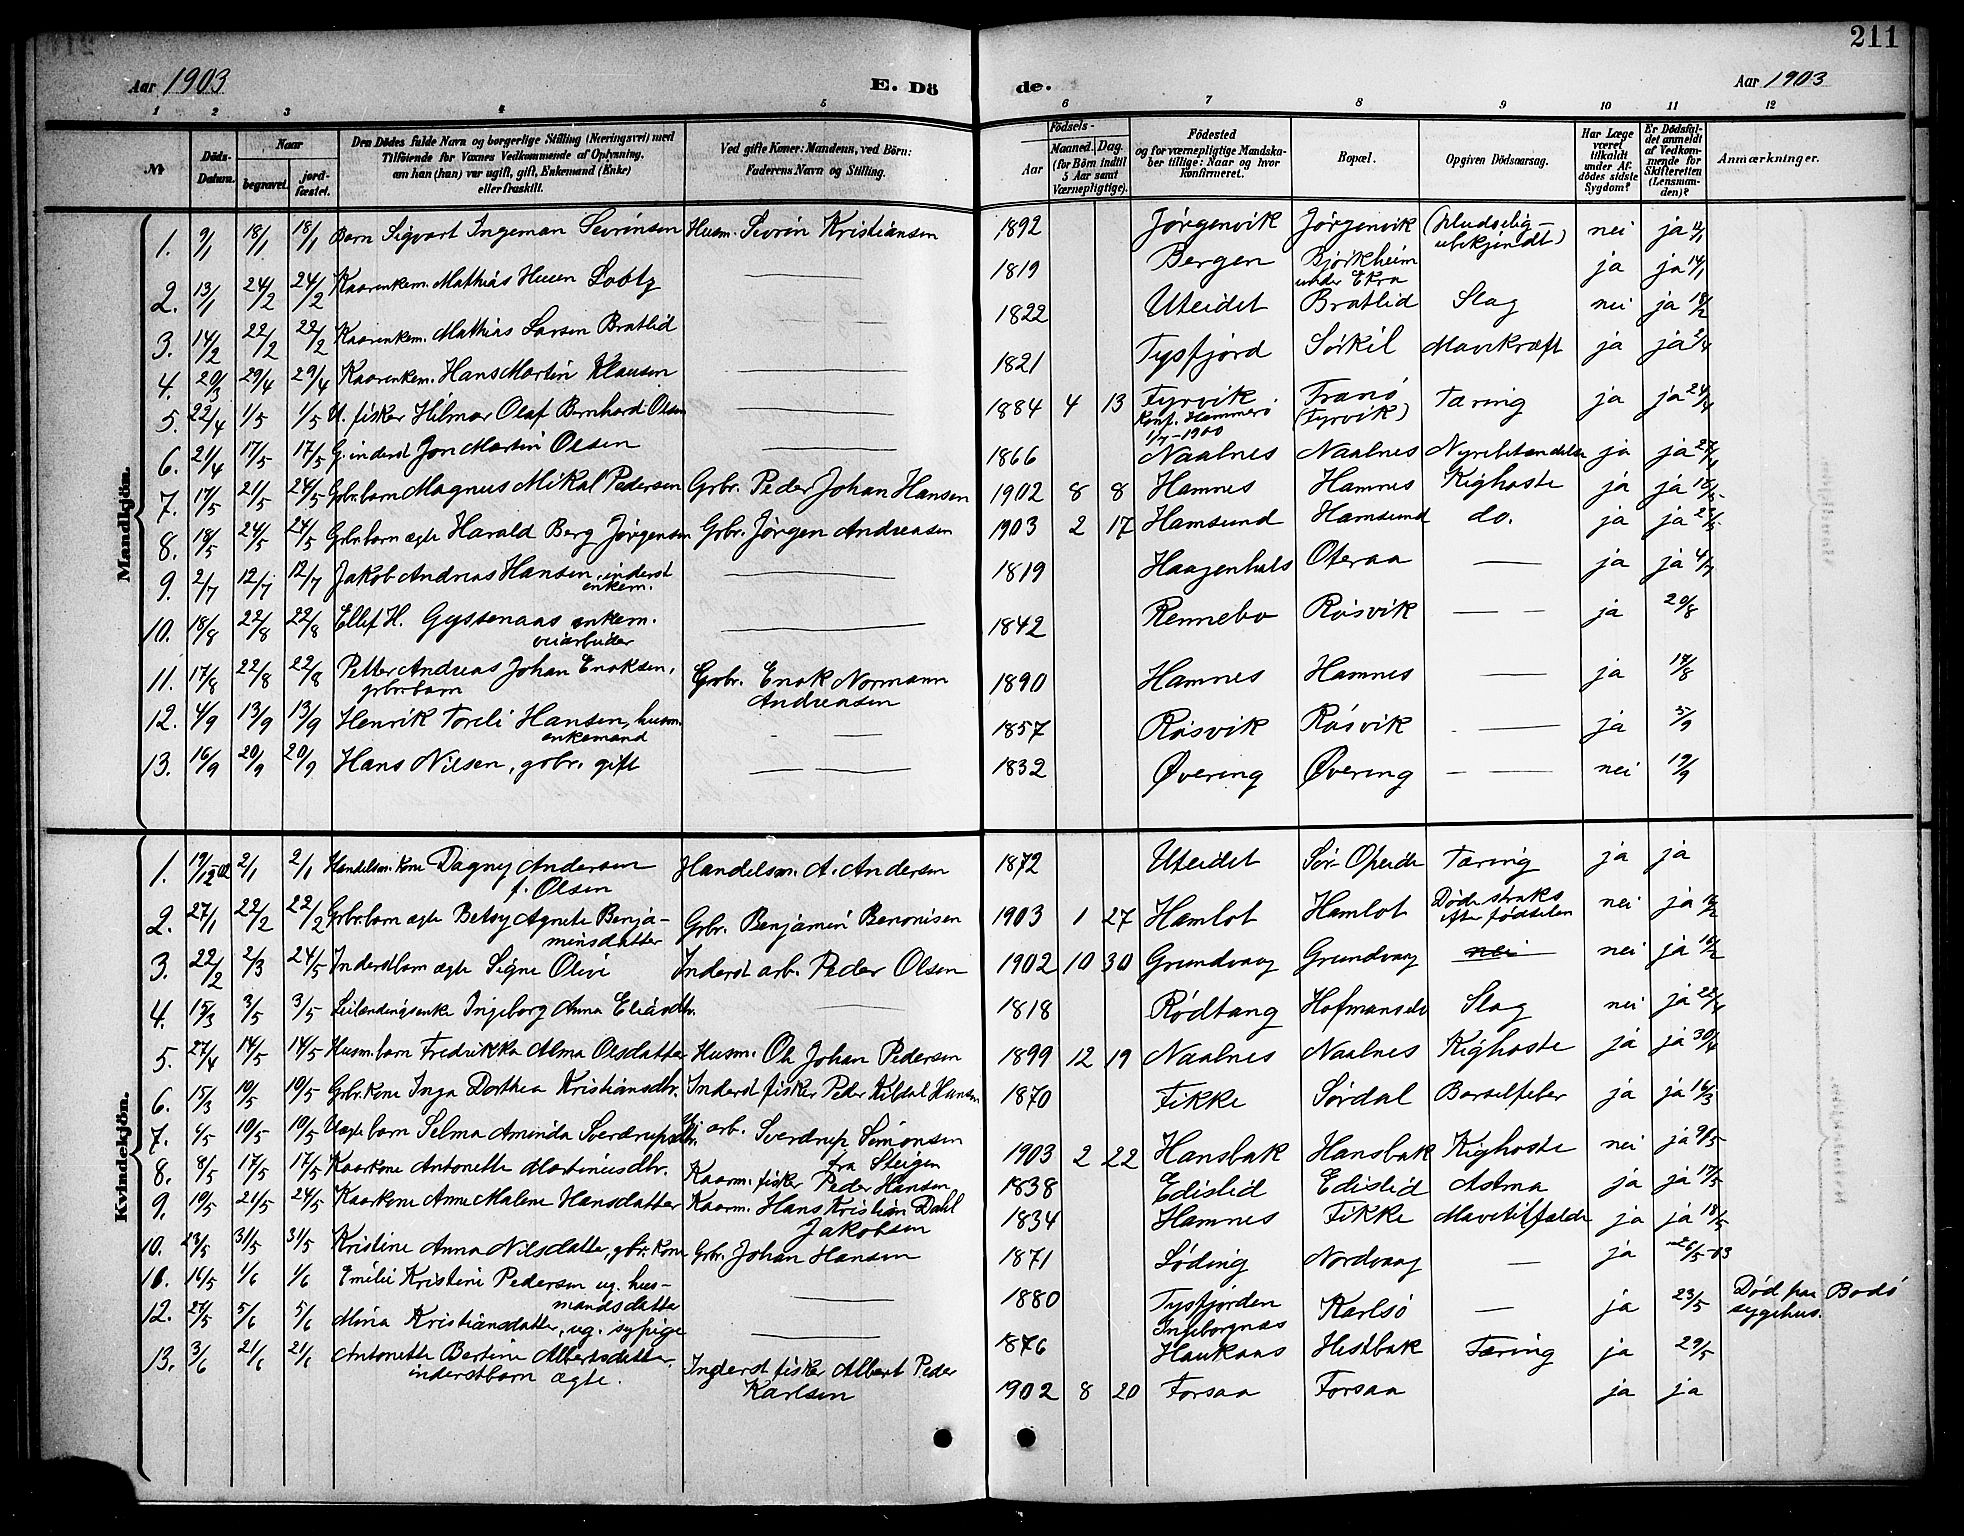 211
Aar 1903 E. Dö de. Aar 1903
1 2 3 4 5 6 7 8 9 10 11 12
№ Döds-Datum. Naar begravet. jordfæstet. Den Dödes fulde Navn og borgerlige Stilling (Næringsvei) med Tilföiende for Voxnes Vedkommende af Oplysning, om han (hun) var ugift, gift, Enkemand (Enke) eller fraskilt. Ved gifte Koner: Mandens, ved Börn: Faderens Navn og Stilling. Födsels- Aar Maaned. Dag. (for Börn indtil 5 Aar samt Værnepligtige). Födested og for værnepligtige Mandskaber tillige: Naar og hvor Konfirmeret. Bopæl. Opgiven Dödsaarsag. Har Læge været tilkaldt under Afdödes sidste Sygdom? Er Dödsfaldet anmeldt af Vedkommende for Skifteretten (Lensmanden)? Anmærkninger.
Mandkjön.
1. 9/1 18/1 18/1 Barn Sigvart Ingeman Sevrinsen Husm. Sevrin Kristiansen 1892 Jørgenvik Jørgenvik (Pludselig - ubekjendt) nei ja 12/1
2. 13/1 24/2 24/2 Kaarenkem. Mathias Huen Lootz — 1819 Bergen Bjørkheim under Ekra ja ja 14/1
3. 14/2 22/2 22/2 Kaarenkem. Mathias Larsen Bratlid — 1822 Uteidet Bratlid Slag nei ja 18/2
4. 20/3 29/4 29/4 Kaarenkem. Hans Martin Klausen — 1821 Tysfjord Sørkil Mavekræft ja ja 2/4
5. 22/4 1/5 1/5 U. fisker Hilmar Olaf Bernhard Olsen — 1884 4 13 Fyrvik Konf. Hammerø 1/7-1900 Tranø (Fyrvik) Tæring ja ja 24/4
6. 21/4 17/5 17/5 G. inderst Jon Martin Olsen — 1866 Naalnes Naalnes Nyrebetændelse ja ja 27/4
7. 17/5 21/5 24/5 Grbr. barn Magnus Mikal Pedersen Grbr. Peder Johan Hansen 1902 8 8 Hamnes Hamnes Kighoste ja ja 18/5
8. 18/5 24/5 24/5 Grbr. barn ægte Harald Berg Jørgensen Grbr. Jørgen Andreasen 1903 2 17 Hamsund Hamsund do. ja ja 22/5
9. 2/7 12/7 12/7 Jakob Andreas Hansen, inderst enkem. — 1819 Haagenhals Oteraa — ja ja 4/7
10. 18/8 22/8 22/8 Ellef H. Gyssenaas enkem. veiarbeider — 1842 Rennebo Røsvik — — ja 20/8
11. 17/8 22/8 22/8 Petter Andreas Johan Enoksen, grbr. barn Grbr. Enok Normann Andreasen 1890 Hamnes Hamnes — ja 19/8
12. 4/9 13/9 13/9 Henrik Toreli Hansen, husm. enkemand - — 1857 Røsvik Røsvik - — ja 5/9
13. 16/9 20/9 20/9 Hans Nilsen, grbr. gift — — 1832 Øvering Øvering — — nei 19/9
Kvindekjön.
1. 19/12 02 2/1 2/1 Handelsm. kone Dagny Andersen f. Olsen Handelsm. A. Andersen 1872 Uteidet Sør-Opeide Tæring ja ja
2. 27/1 22/2 22/2 Grbr. barn ægte Betsy Agnete Benjaminsdatter Grbr. Benjamin Benonisen 1903 1 27 Hamlot Hamlot Døde straks efter fødselen nei ja 12/2
3. 22/2 2/3 24/5 Inderst barn ægte Signe Olivi Inderst arb. Peder Olsen 1902 10 30 Grundvaag Grundvaag nei nei ja 10/2
4. 15/3 3/5 3/5 Leilendingsenke Ingeborg Anna Eliasdtr. — 1818 Rødtang Hofmanselv Slag nei ja 22/4
5. 27/4 14/5 14/5 Husm. barn Fredrikka Alma Olsdatter Husm. Ole Johan Pedersen 1899 12 19 Naalnes Naalnes Kighoste ja ja 30/4
6. 15/3 10/5 10/5 Grbr. kone Inga Dorthea Kristiansdtr. Inderst fisker Peder Kildal Hansen 1870 Fikke Sørdal Barselfeber ja ja 16/3
7. 4/5 10/5 10/5 Uægte barn Selma Aminda Sverdrupsdtr. Gj. arb. Sverdrup Simonsen fra Steigen 1903 2 22 Hansbak Hansbak Kighoste nei ja 9/5
8. 8/5 17/5 17/5 Kaarkone Antonette Martiniusdtr. Kaarm. fisker Peder Hansen 1838 Edislid Edislid Astma ja ja 17/5
9. 10/5 21/5 24/5 Kaarkone Anne Malene Hansdatter Kaarm. Hans Kristian Dahl Jakobsen 1834 Hamnes Fikke Mavetilfælde ja ja 18/5
10. 23/5 31/5 31/5 Kristine Anna Nilsdatter, gbr. kone Grbr. Johan Hansen 1871 Løding Nordvaag — ja 26/5-03
11. 16/5 1/6 1/6 Emilie Kristine Pedersen ug. husmandsdatter — 1880 Tysfjorden Ingeborgnæs Karlsø — ja 23/5 Død paa Bodø sygehus.
12. 27/5 5/6 5/6 Mina Kristiansdatter, ug. sypige — 1876 Haukaas Hestbak Tæring ja 29/5
13. 3/6 21/6 21/6 Antonette Bertine Albertsdatter, inderstbarn ægte. Inderst fisker Albert Peder Karlsen 1902 8 20 Forsaa Forsaa ja ja